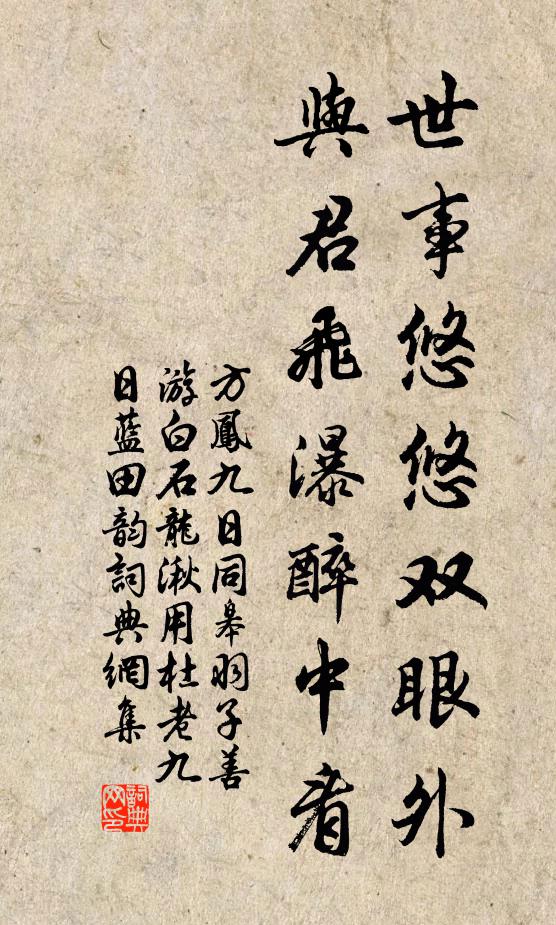 世事悠悠双眼外
與君飛瀑醉中看
方鳳九日同皋羽子善
游白石龍湫用杜老九
日藍田韵詞典網集
詞典網印